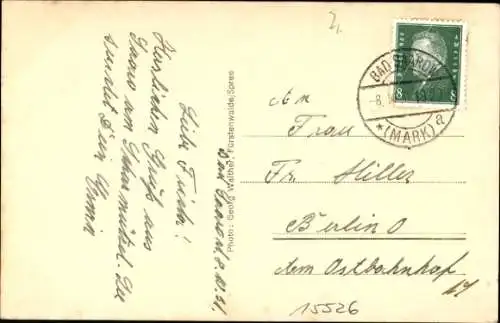 Bad Saarow 8.10.31.
Liebe Frieda!
Herzlichen Gruß aus
Saarow am Scharmützel. See
sendet Dir Erna
Photo: Georg Walther, Fürstenwalde/Spree
BAD SAAROW
8
8
(MARK)
a
An
Frau
Fr. Hiller
Berlin O
dem Ostbahnhof
15526